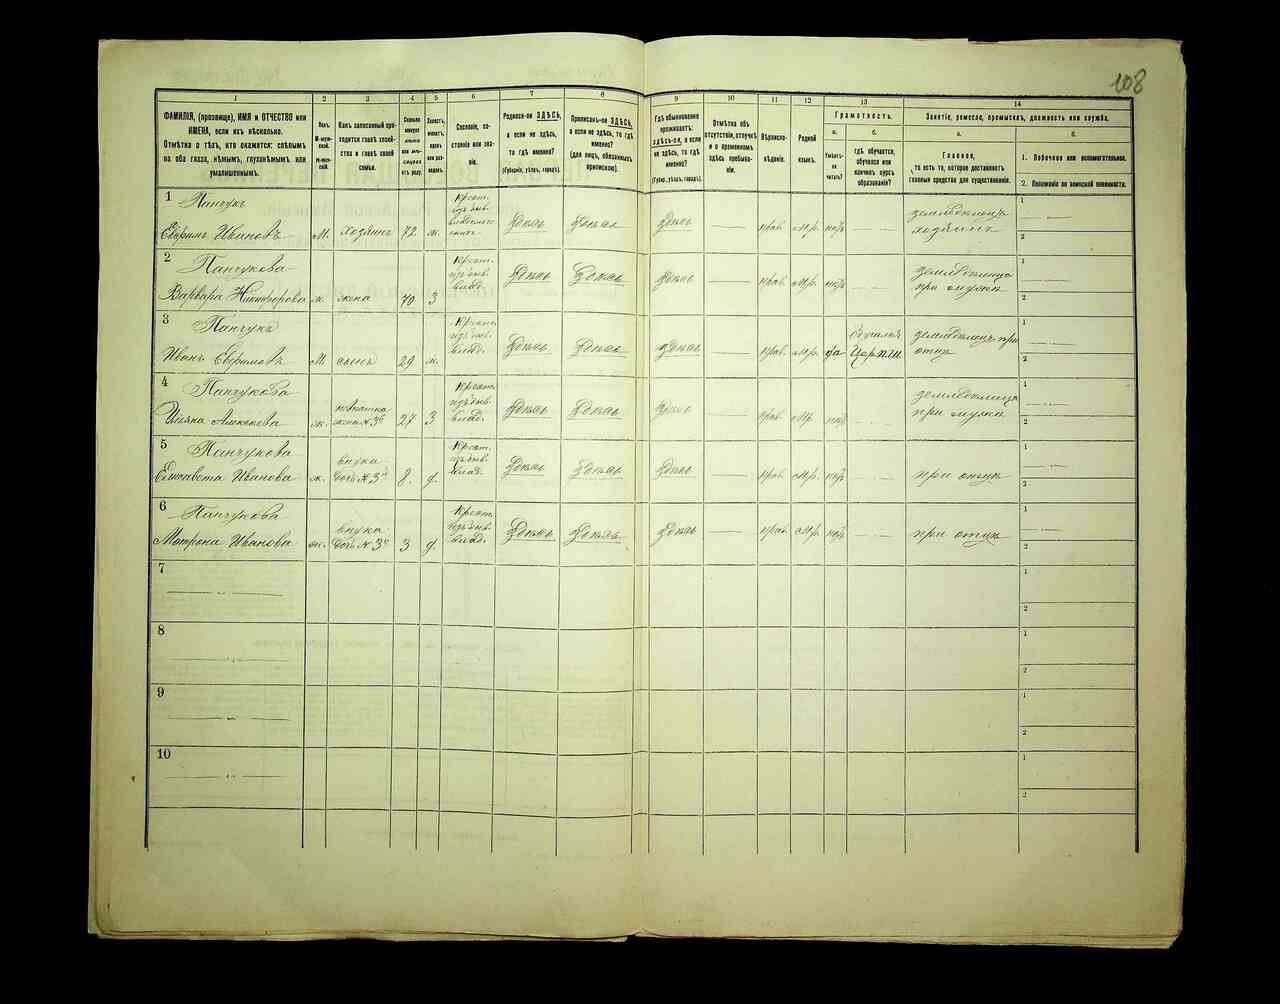 108
1
2
3
4
5
6
7
8
9
10
11
12
13
14
ФАМИЛІЯ, (прозвище), ИМЯ и ОТЧЕСТВО или
ИМЕНА, если ихъ нѣсколько.
Отмѣтка о тѣхъ, кто окажется: слѣпымъ
на оба глаза, нѣмымъ, глухонѣмымъ или
умалишеннымъ.
Полъ.
М-муж-
ской.
Ж-жен-
скій.
Какъ записанный при-
ходится главѣ хозяй-
ства и главѣ своей
семьи.
Сколько
минуло
лѣтъ
или мѣ-
сяцевъ
отъ роду.
Холостъ,
женатъ,
вдовъ
или раз-
веденъ.
Сословіе, со-
стояніе или зва-
ніе.
Родился-ли ЗДѢСЬ,
а если не здѣсь,
то гдѣ именно?
(Губернія, уѣздъ, городъ).
Приписанъ-ли ЗДѢСЬ,
а если не здѣсь, то гдѣ
именно?
(для лицъ, обязанныхъ
припискою).
Гдѣ обыкновенно
проживаетъ:
здѣсь-ли, а если
не здѣсь, то гдѣ
именно?
(Губер., уѣздъ, городъ).
Отмѣтка объ
отсутствіи, отлучкѣ
и о временномъ
здѣсь пребыва-
ніи.
Вѣроиспо-
вѣданіе.
Родной
языкъ.
Грамотность.
а.
Умѣетъ-
ли
читать?
б.
гдѣ обучается,
обучался или
кончилъ курсъ
образованія?
Занятіе, ремесло, промыселъ, должность или служба.
а.
Главное,
то есть то, которое доставляетъ
главныя средства для существованія.
б.
1. Побочное или вспомогательное.
2. Положеніе по воинской повинности.
1
Панчукъ
Евфимъ Ивановъ М. хозяинъ 72 ж.
Крест. изъ быв.
Здѣсь Здѣсь Здѣсь — прав. Мр. нѣтъ
земледѣлецъ
хозяинъ
1
2
2
Панчукова
Варвара Никифорова ж. жена 70 З
Крест. изъ быв. влад.
Здѣсь Здѣсь Здѣсь — прав. Мр. нѣтъ
земледѣлица
при мужѣ
1
2
3
Панчукъ
Иванъ Евфимовъ М. сынъ 29 ж.
Крест. изъ быв. влад.
Здѣсь Здѣсь Здѣсь — прав. Мр. да
обучался
земледѣлецъ при
отцѣ
1
2
4
Панчукова
Алексѣева ж. невѣстка жена № 3й 27 З
Крест. изъ быв. влад.
Здѣсь Здѣсь Здѣсь — прав. Мр. нѣтъ
земледѣлица
при мужѣ
1
2
5
Панчукова
Елисавета Иванова ж. внука дочь № 3й 8. д.
Крест. изъ быв. влад.
Здѣсь Здѣсь Здѣсь — прав. Мр. нѣтъ
при отцѣ
1
2
6
Панчукова
Мотрона Иванова ж. внука дочь № 3й 3 д.
Крест. изъ быв. влад.
Здѣсь Здѣсь Здѣсь — прав. Мр. нѣтъ
при отцѣ
1
2
7
1
2
8
1
2
9
1
2
10
1
2